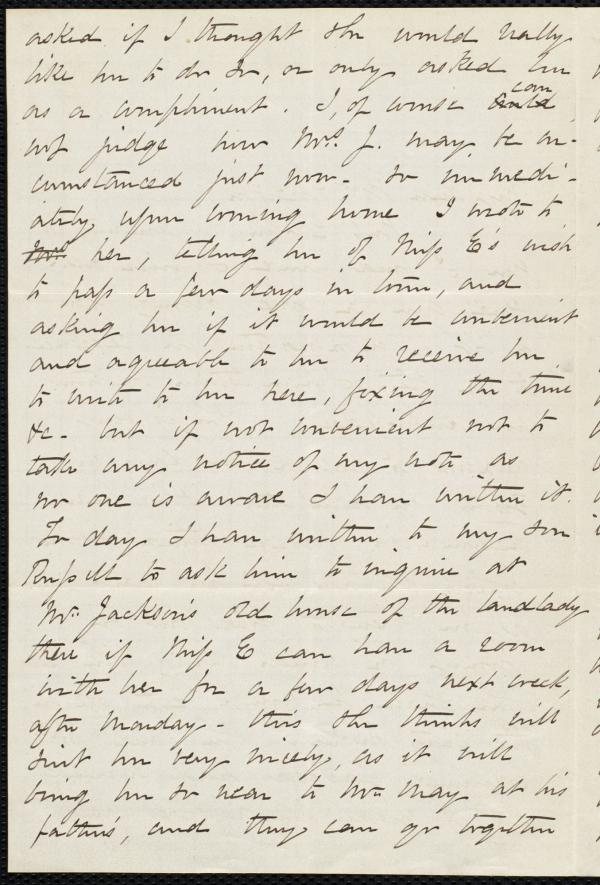 asked if I thought she would really
like her to do so, or only asked her
as a compliment. I, of course could can
not judge how Mrs. J. may be cir-
cumstanced just now - so immedi-
ately upon coming home I wrote to
Mrs her, telling her of Miss E's wish
to pass a few days in town, and
asking her if it would be convenient
and agreeable to her to receive her
to write to her here, fixing the time
&c - but if not convenient not to
take any notice of my note as
no one is aware I have written it.
To day I have written to my son
Russell to ask him to inquire at
Mr. Jackson's old house of the landlady
there if Miss E can have a room
with her for a few days next week,
after Monday - this she thinks will
suit her very nicely, as it will
bring her so near to Mr. May at his
father's, and they can go together